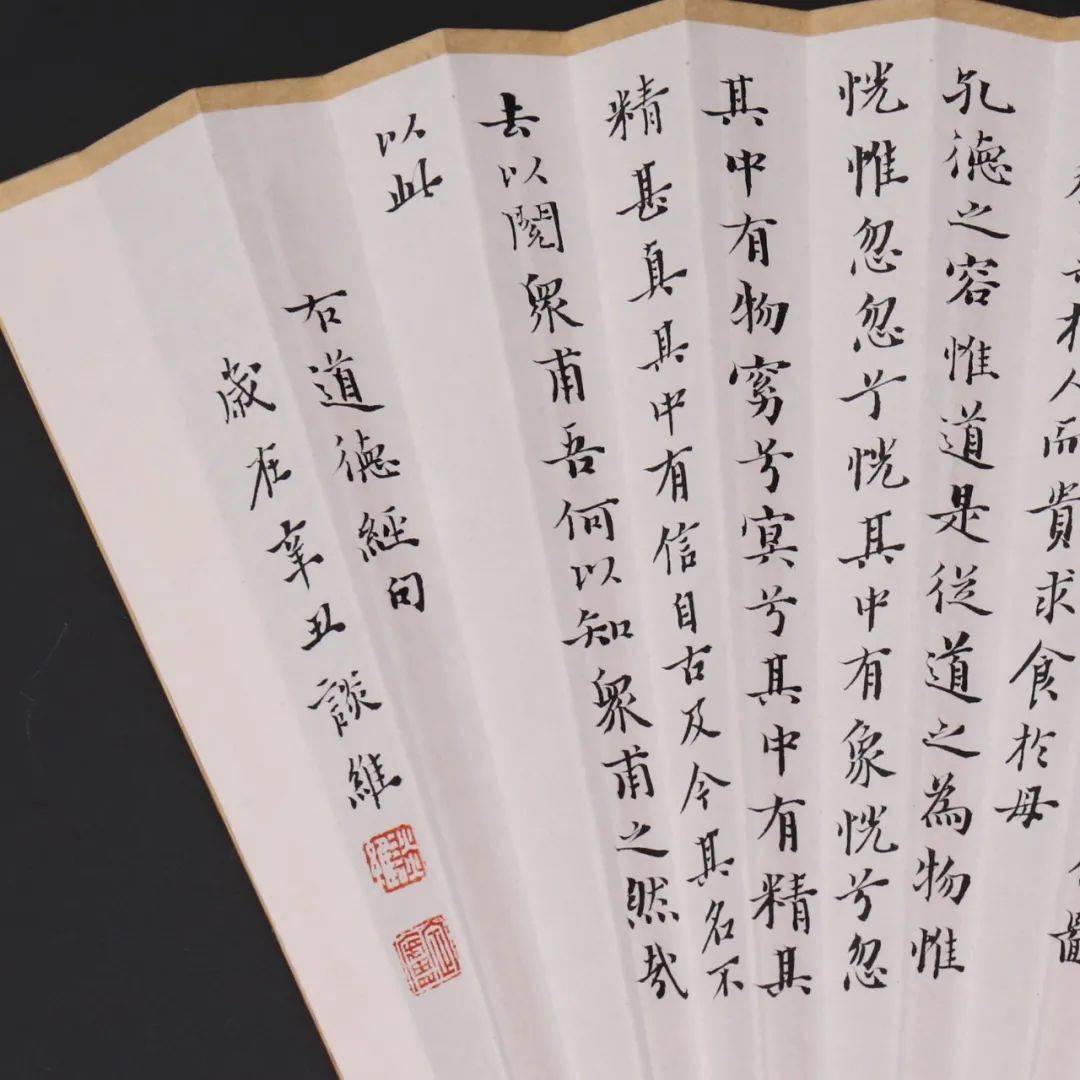 於人而貴求食於母
孔德之容惟道是從道之為物惟
恍惟忽忽兮恍其中有象恍兮忽
其中有物窈兮冥兮其中有精其
精甚真其中有信自古及今其名不
去以閱衆甫吾何以知衆甫之然哉
以此
右道德經句
歲在辛丑談維
談維